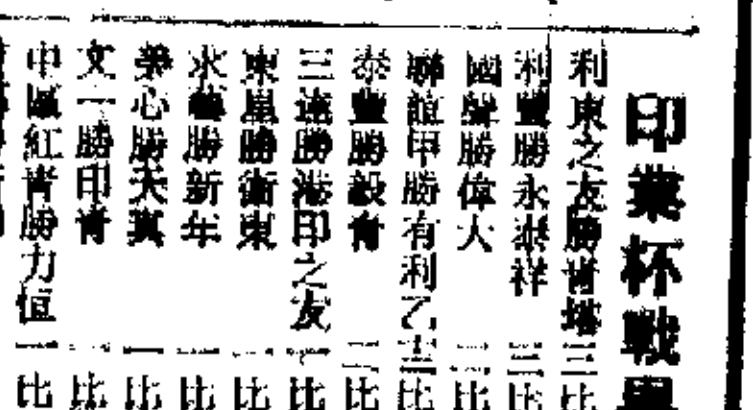 印業杯戰果
利東之友勝青塔三比
利豐勝永洪祥三比
國聲勝偉大二比
聯誼甲勝有利乙三比
泰豐勝毅青二比
三達勝港印之友二比
東星勝衛東一比
水藝勝新年二比
心勝天真一比
文一勝印青二比
中區紅青勝力恒一比